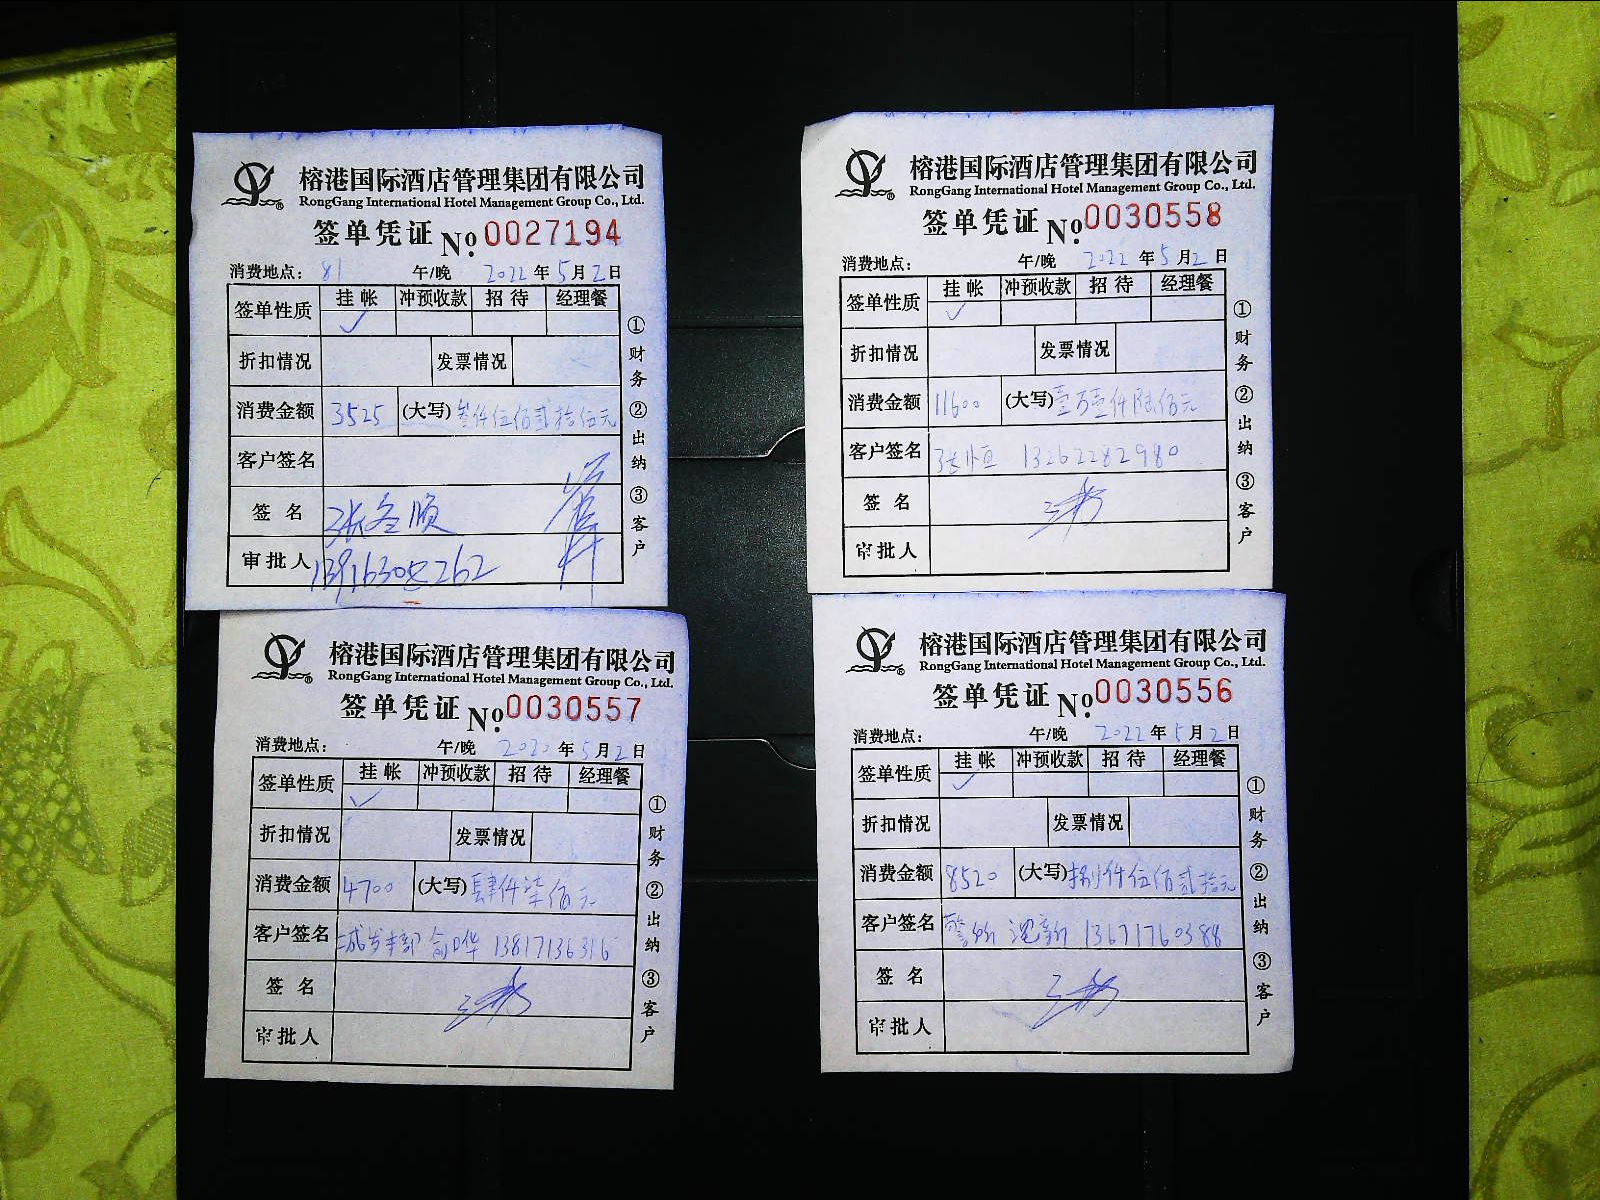 榕港国际酒店管理集团有限公司
RongGang International Hotel Management Group Co., Ltd.
签单凭证 No. 0027194
消费地点: 81 午/晚 2022年5月2日
签单性质 挂帐 冲预收款 招待 经理餐
✓
折扣情况 发票情况
消费金额 3525 (大写) 叁仟伍佰贰拾伍元
客户签名
签名 张冬顺
审批人
①财务 ②出纳 ③客户
榕港国际酒店管理集团有限公司
RongGang International Hotel Management Group Co., Ltd.
签单凭证 No. 0030558
消费地点: 午/晚 2022年5月2日
签单性质 挂帐 冲预收款 招待 经理餐
✓
折扣情况 发票情况
消费金额 11600 (大写) 壹万壹仟陆佰元
客户签名 张恒 13262282980
签名
审批人
①财务 ②出纳 ③客户
榕港国际酒店管理集团有限公司
RongGang International Hotel Management Group Co., Ltd.
签单凭证 No. 0030557
消费地点: 午/晚 2020年5月2日
签单性质 挂帐 冲预收款 招待 经理餐
✓
折扣情况 发票情况
消费金额 4700 (大写) 肆仟柒佰元
客户签名 13817136316
签名
审批人
①财务 ②出纳 ③客户
榕港国际酒店管理集团有限公司
RongGang International Hotel Management Group Co., Ltd.
签单凭证 No. 0030556
消费地点: 午/晚 2022年5月2日
签单性质 挂帐 冲预收款 招待 经理餐
✓
折扣情况 发票情况
消费金额 8520 (大写) 捌仟伍佰贰拾元
客户签名 13671760388
签名
审批人
①财务 ②出纳 ③客户